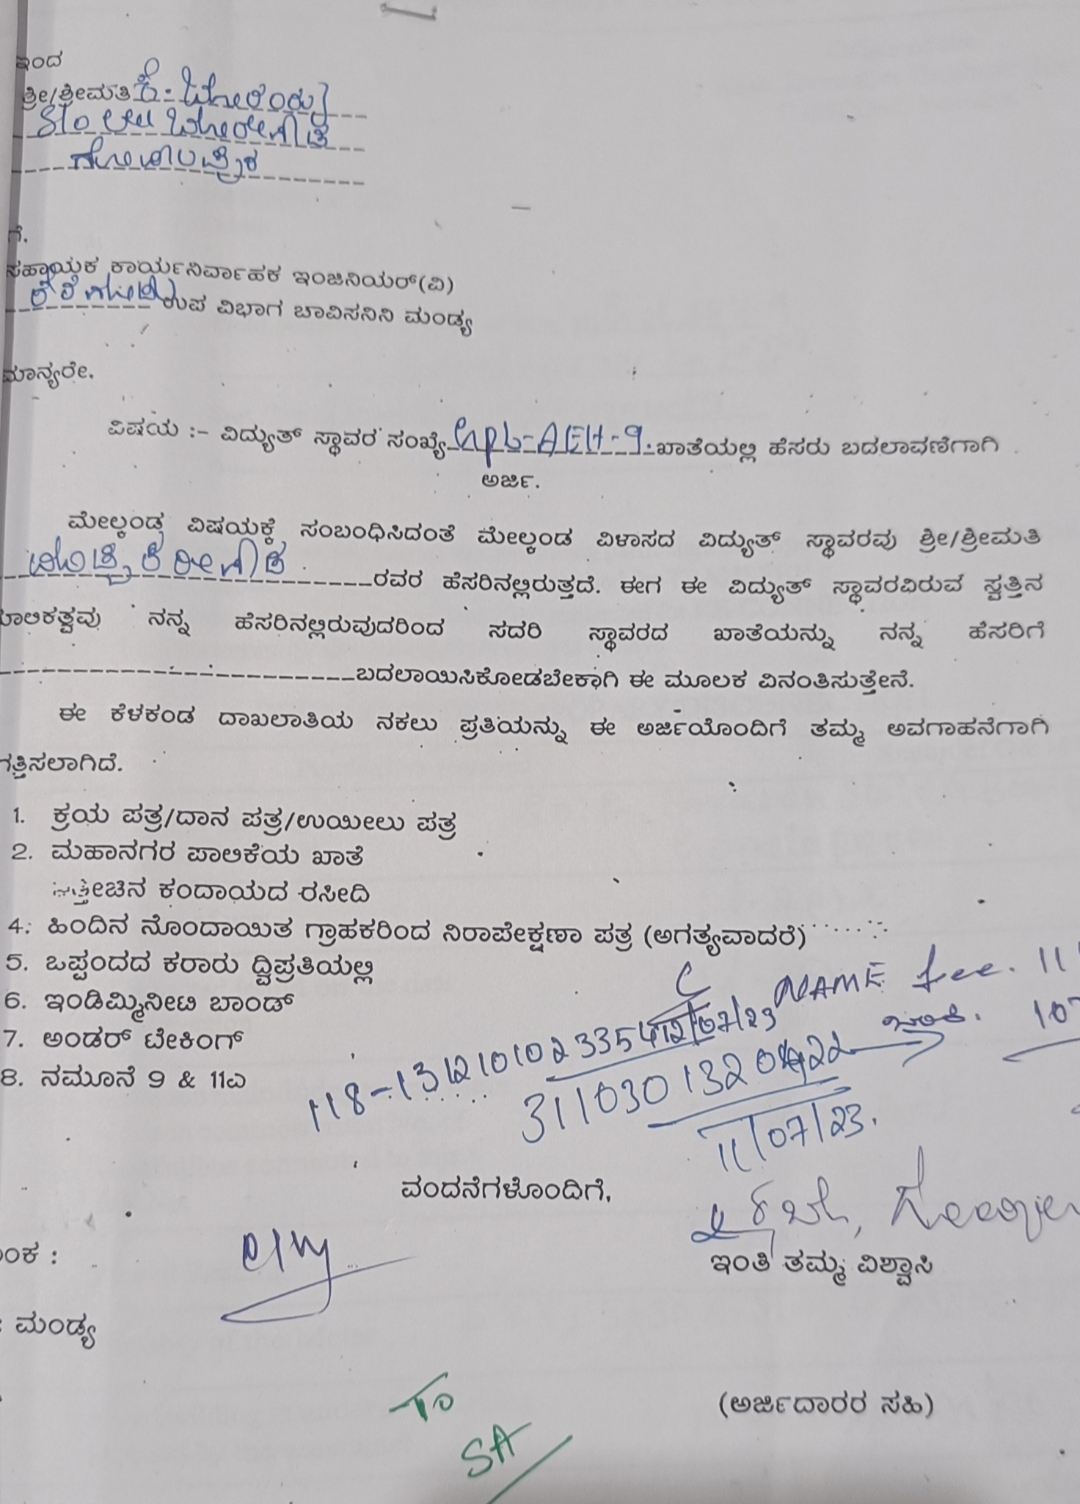 ಇಂದ
ಶ್ರೀ/ಶ್ರೀಮತಿ ಕೆ.
ಗೆ.
ಸಹಾಯಕ ಕಾರ್ಯನಿರ್ವಾಹಕ ಇಂಜಿನಿಯರ್(ವಿ)
ಉಪ ವಿಭಾಗ ಚಾವಿಸನಿನಿ ಮಂಡ್ಯ
ಮಾನ್ಯರೇ.
ವಿಷಯ :- ವಿದ್ಯುತ್ ಸ್ಥಾವರ ಸಂಖ್ಯೆ GPL-AEH-9. ಖಾತೆಯಲ್ಲಿ ಹೆಸರು ಬದಲಾವಣೆಗಾಗಿ
ಅರ್ಜಿ.
ಮೇಲ್ಕಂಡ ವಿಷಯಕ್ಕೆ ಸಂಬಂಧಿಸಿದಂತೆ ಮೇಲ್ಕಂಡ ವಿಳಾಸದ ವಿದ್ಯುತ್ ಸ್ಥಾವರವು ಶ್ರೀ/ಶ್ರೀಮತಿ
ರವರ ಹೆಸರಿನಲ್ಲಿರುತ್ತದೆ. ಈಗ ಈ ವಿದ್ಯುತ್ ಸ್ಥಾವರವಿರುವ ಸ್ವತ್ತಿನ
ಾಲಿಕತ್ವವು ನನ್ನ ಹೆಸರಿನಲ್ಲಿರುವುದರಿಂದ ಸದರಿ ಸ್ಥಾವರದ ಖಾತೆಯನ್ನು ನನ್ನ ಹೆಸರಿಗೆ
ಬದಲಾಯಿಸಿಕೋಡಬೇಕಾಗಿ ಈ ಮೂಲಕ ವಿನಂತಿಸುತ್ತೇನೆ.
ಈ ಕೆಳಕಂಡ ದಾಖಲಾತಿಯ ನಕಲು ಪ್ರತಿಯನ್ನು ಈ ಅರ್ಜಿಯೊಂದಿಗೆ ತಮ್ಮ ಅವಗಾಹನೆಗಾಗಿ
ಗತ್ತಿಸಲಾಗಿದೆ.
1. ಕ್ರಯ ಪತ್ರ/ದಾನ ಪತ್ರ/ಉಯೀಲು ಪತ್ರ
2. ಮಹಾನಗರ ಪಾಲಿಕೆಯ ಖಾತೆ
ಇತ್ತೀಚಿನ ಕಂದಾಯದ ರಸೀದಿ
4. ಹಿಂದಿನ ನೊಂದಾಯಿತ ಗ್ರಾಹಕರಿಂದ ನಿರಾಪೇಕ್ಷಣಾ ಪತ್ರ (ಅಗತ್ಯವಾದರೆ)
5. ಒಪ್ಪಂದದ ಕರಾರು ದ್ವಿಪ್ರತಿಯಲ್ಲಿ
6. ಇಂಡಿಮ್ಮಿನೀಟಿ ಬಾಂಡ್
7. ಅಂಡರ್ ಟೇಕಿಂಗ್
8. ನಮೂನೆ 9 & 11ಎ
NAME fee. 11
11/07/23.
ವಂದನೆಗಳೊಂದಿಗೆ,
ಇಂತಿ ತಮ್ಮ ವಿಶ್ವಾಸಿ
ಂಕ :
: ಮಂಡ್ಯ
(ಅರ್ಜಿದಾರರ ಸಹಿ)
To
SA